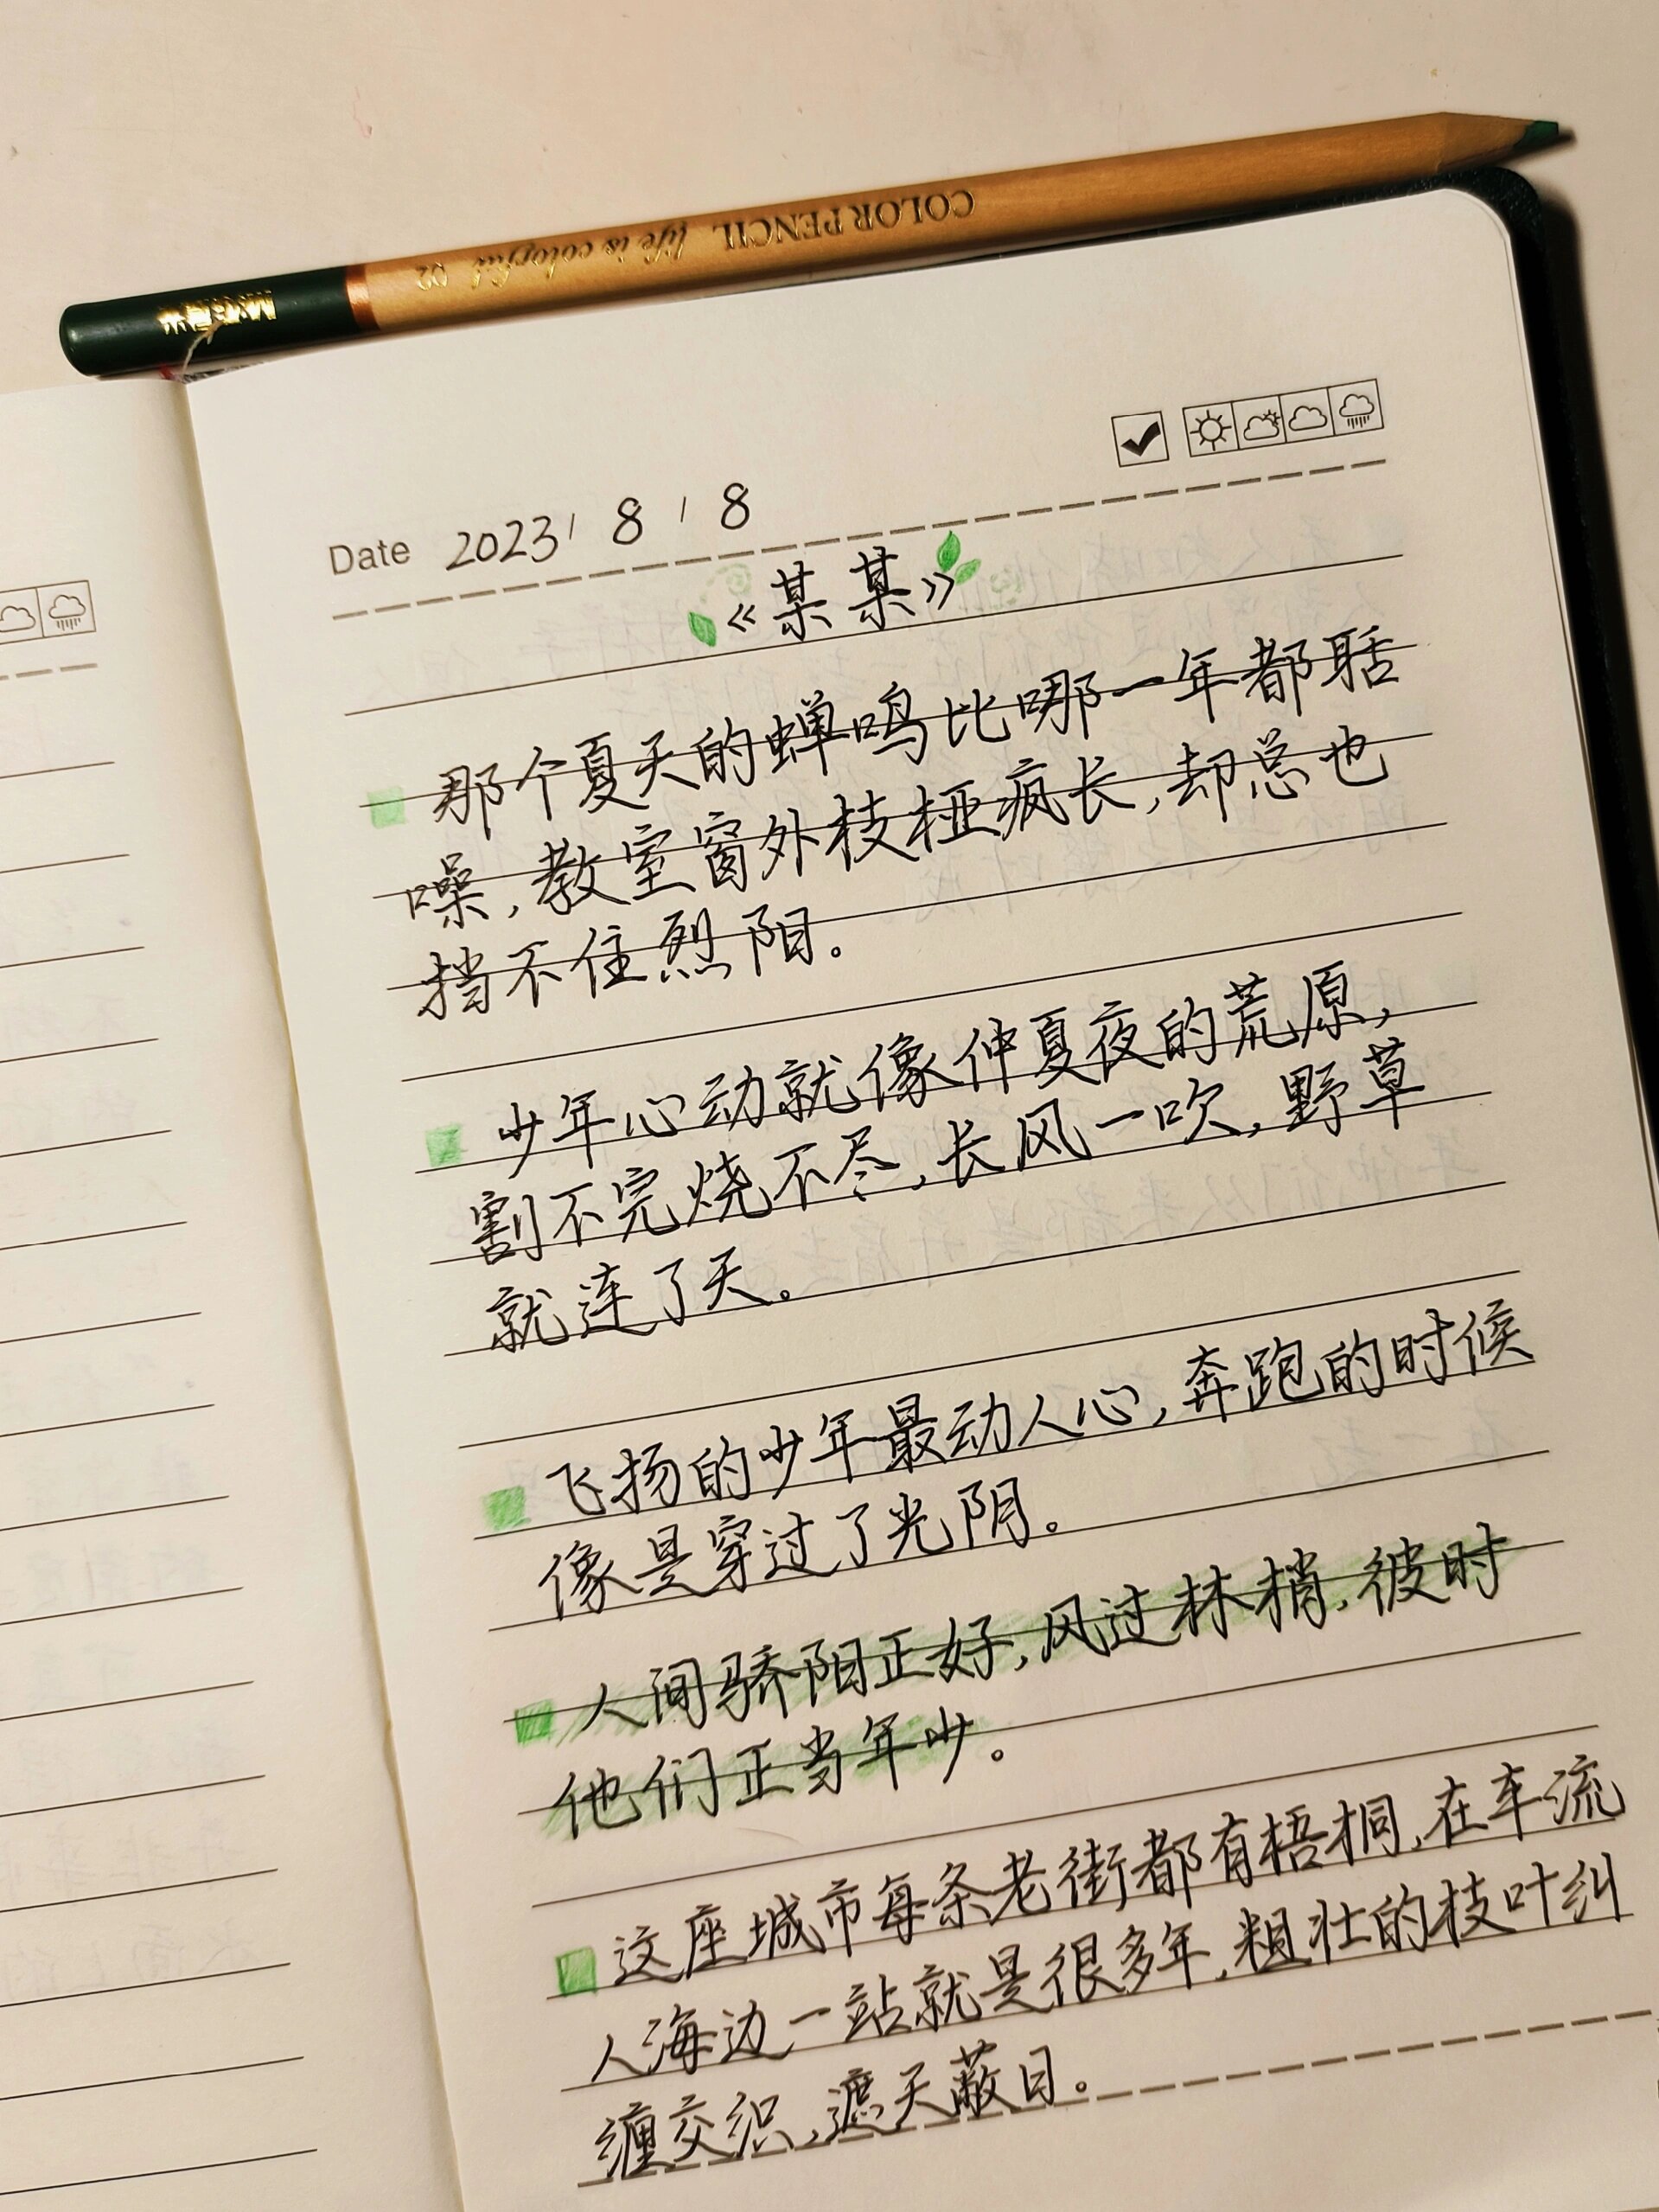 COLOR PENCIL life is colorful 02
Date 2023 / 8 / 8
《某某》
那个夏天的蝉鸣比哪一年都聒
噪，教室窗外枝桠疯长，却总也
挡不住烈阳。
少年心动就像仲夏夜的荒原，
割不完烧不尽，长风一吹，野草
就连了天。
飞扬的少年最动人心，奔跑的时候
像是穿过了光阴。
人间骄阳正好，风过林梢，彼时
他们正当年少。
这座城市每条老街都有梧桐，在车流
人海边一站就是很多年，粗壮的枝叶纠
缠交织，遮天蔽日。